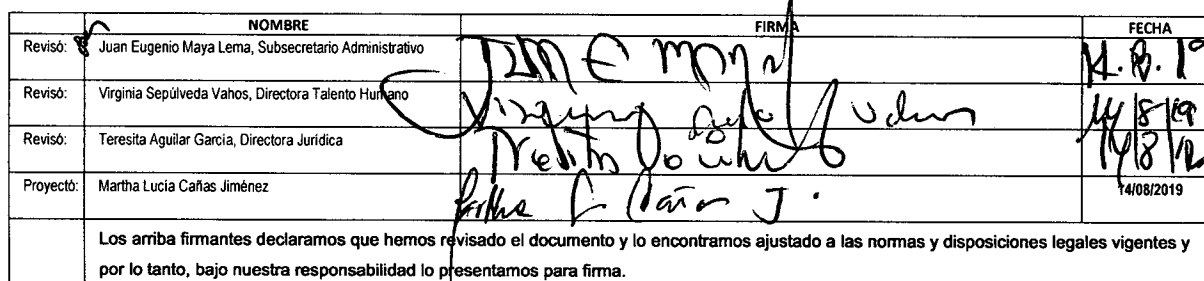 NOMBRE FIRMA FECHA
Revisó: Juan Eugenio Maya Lema, Subsecretario Administrativo
Revisó: Virginia Sepúlveda Vahos, Directora Talento Humano 14/8/19
Revisó: Teresita Aguilar García, Directora Jurídica 14/8/19
Proyectó: Martha Lucía Cañas Jiménez 14/08/2019
Los arriba firmantes declaramos que hemos revisado el documento y lo encontramos ajustado a las normas y disposiciones legales vigentes y
por lo tanto, bajo nuestra responsabilidad lo presentamos para firma.